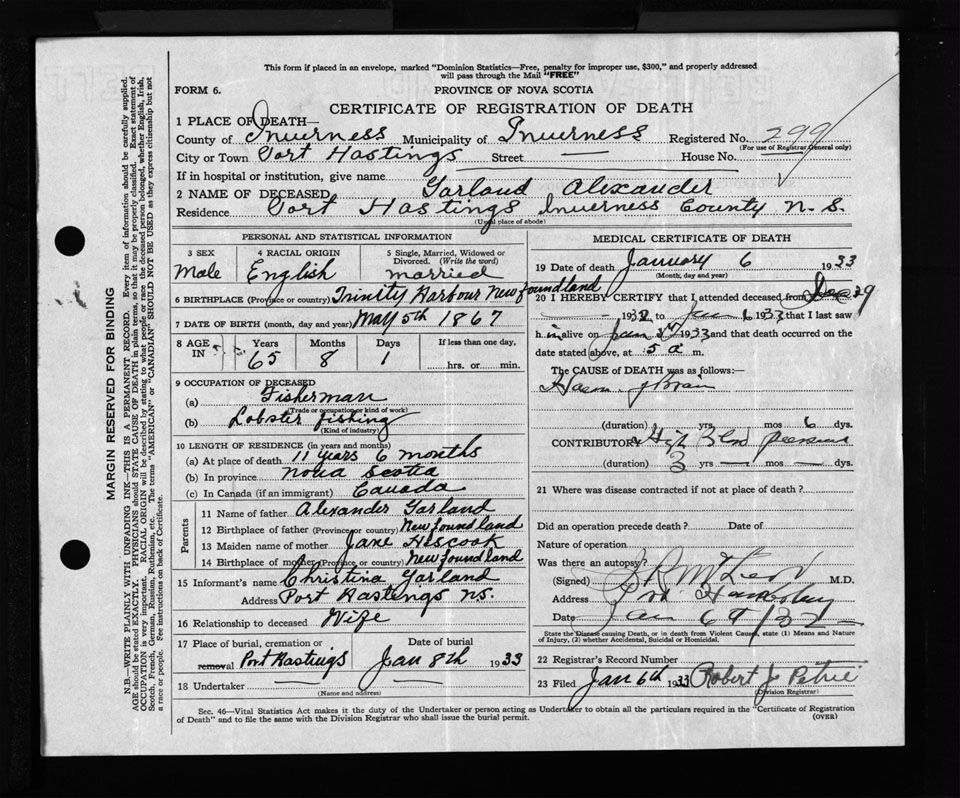 This form if placed in an envelope, marked "Dominion Statistics—Free, penalty for improper use, $300," and properly addressed
will pass through the Mail "FREE"
FORM 6.
PROVINCE OF NOVA SCOTIA
CERTIFICATE OF REGISTRATION OF DEATH
1 PLACE OF DEATH—
County of Inverness Municipality of Inverness Registered No. 299
(For use of Registrar General only)
City or Town Port Hastings Street — House No.
If in hospital or institution, give name
2 NAME OF DECEASED Garland Alixander
Residence Port Hastings Inverness County N. S.
(Usual place of abode)
PERSONAL AND STATISTICAL INFORMATION
3 SEX 4 RACIAL ORIGIN 5 Single, Married, Widowed or
Divorced. (Write the word)
Male English married
6 BIRTHPLACE (Province or country) Trinity Harbour Newfoundland
7 DATE OF BIRTH (month, day and year) May 5th 1867
8 AGE Years Months Days If less than one day,
IN 65 8 1 hrs. or min.
9 OCCUPATION OF DECEASED
(a) Fisherman
(Trade or occupation or kind of work)
(b) Lobster fishing
(Kind of industry)
10 LENGTH OF RESIDENCE (in years and months)
(a) At place of death 11 years 6 months
(b) In province Nova Scotia
(c) In Canada (if an immigrant) Canada
Parents
11 Name of father Alexander Garland
12 Birthplace of father (Province or country) Newfoundland
13 Maiden name of mother Jane Hiscook
14 Birthplace of mother (Province or country) Newfoundland
15 Informant's name Christina Garland
Address Port Hastings NS.
16 Relationship to deceased Wife
17 Place of burial, cremation or Date of burial
removal Port Hastings Jan 8th 1933
18 Undertaker — —
(Name and address)
MEDICAL CERTIFICATE OF DEATH
19 Date of death January 6 1933
(Month, day and year)
20 I HEREBY CERTIFY that I attended deceased from Dec 29
1932 to Jan 6 1933 that I last saw
h im alive on Jan 1933 and that death occurred on
the date stated above, at 5 a m.
The CAUSE of DEATH was as follows:—
Brain
(duration) yrs. mos 6 dys.
CONTRIBUTORY High Blood pressure
(duration) 3 yrs — mos — dys.
21 Where was disease contracted if not at place of death?
Did an operation precede death? Date of
Nature of operation
Was there an autopsy?
(Signed) M.D.
Address Port Hawkesbury
Date Jan 6th
State the Disease causing Death, or in death from Violent Causes, state (1) Means and Nature
of Injury, (2) whether Accidental, Suicidal or Homicidal.
22 Registrar's Record Number
23 Filed Jan 6th 1933 Robert J. Petrie
(Division Registrar)
Sec. 46—Vital Statistics Act makes it the duty of the Undertaker or person acting as Undertaker to obtain all the particulars required in the "Certificate of Registration
of Death" and to file the same with the Division Registrar who shall issue the burial permit.
(OVER)
MARGIN RESERVED FOR BINDING
N.B.—WRITE PLAINLY WITH UNFADING INK—THIS IS A PERMANENT RECORD. Every item of information should be carefully supplied.
AGE should be stated EXACTLY. PHYSICIANS should STATE CAUSE OF DEATH in plain terms, so that it may be properly classified. Exact statement of
OCCUPATION is very important. RACIAL ORIGIN will be described by stating to what people or race the deceased person belonged, whether English, Irish,
Scotch, French, German, Russian, Ruthenian, etc. The terms "AMERICAN" or "CANADIAN" SHOULD NOT BE USED as they express citizenship but not
a race or people. See instructions on back of Certificate.